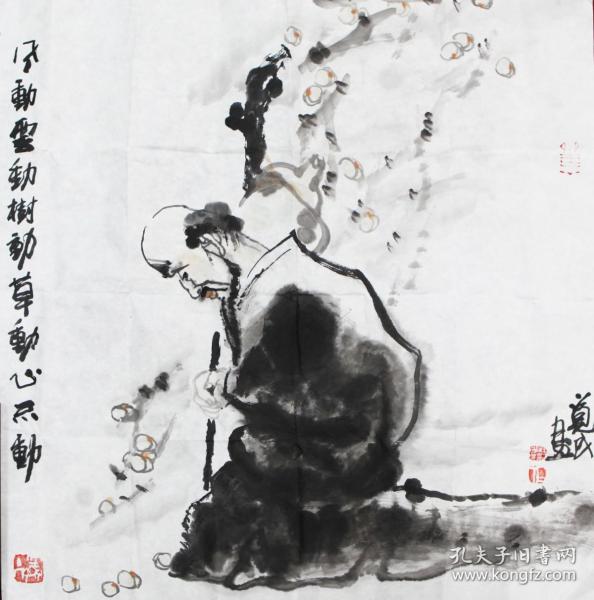 风動雲動樹動草動心不動
孔夫子旧書网
www.kongfz.com